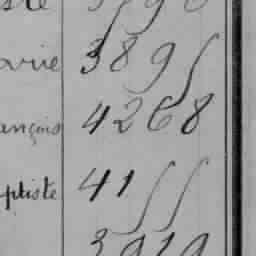 arie 3895
ançois 4268
ptiste 4155